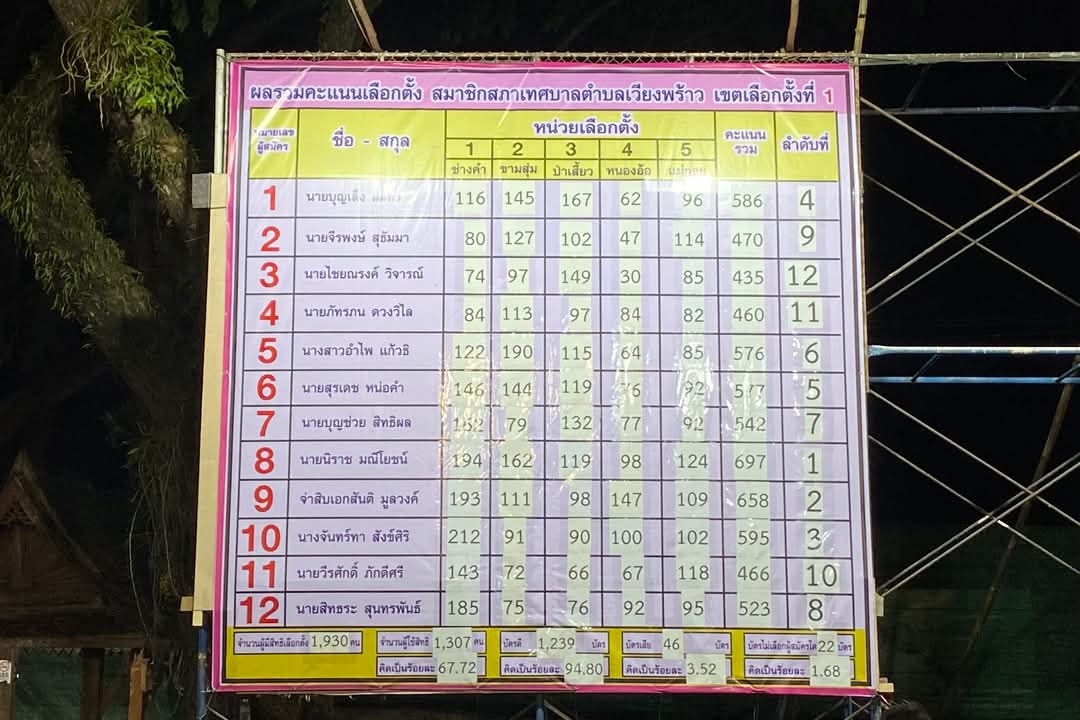 ผลรวมคะแนนเลือกตั้ง สมาชิกสภาเทศบาลตำบลเวียงพร้าว เขตเลือกตั้งที่ 1
หมายเลขผู้สมัคร ชื่อ - สกุล หน่วยเลือกตั้ง คะแนนรวม ลำดับที่
1 2 3 4 5
ช่างคำ ขามสุ่ม ป่าเสี้ยว หนองอ้อ
1 นายบุญเลิง 116 145 167 62 96 586 4
2 นายจีรพงษ์ สุธัมมา 80 127 102 47 114 470 9
3 นายไชยณรงค์ วิจารณ์ 74 97 149 30 85 435 12
4 นายภัทรภน ดวงวิไล 84 113 97 84 82 460 11
5 นางสาวอำไพ แก้วธิ 122 190 115 64 85 576 6
6 นายสุรเดช หน่อคำ 146 144 119 76 92 577 5
7 นายบุญช่วย สิทธิผล 162 79 132 77 92 542 7
8 นายนิราช มณีโยชน์ 194 162 119 98 124 697 1
9 จ่าสิบเอกสันติ มูลวงค์ 193 111 98 147 109 658 2
10 นางจันทร์ทา สังข์ศิริ 212 91 90 100 102 595 3
11 นายวีรศักดิ์ ภักดีศรี 143 72 66 67 118 466 10
12 นายสิทธระ สุนทรพันธ์ 185 75 76 92 95 523 8
จำนวนผู้มีสิทธิเลือกตั้ง 1,930 คน จำนวนผู้ใช้สิทธิ 1,307 คน บัตรดี 1,239 บัตร บัตรเสีย 46 บัตร บัตรไม่เลือกผู้สมัครใด 22 บัตร
คิดเป็นร้อยละ 67.72 คิดเป็นร้อยละ 94.80 คิดเป็นร้อยละ 3.52 คิดเป็นร้อยละ 1.68